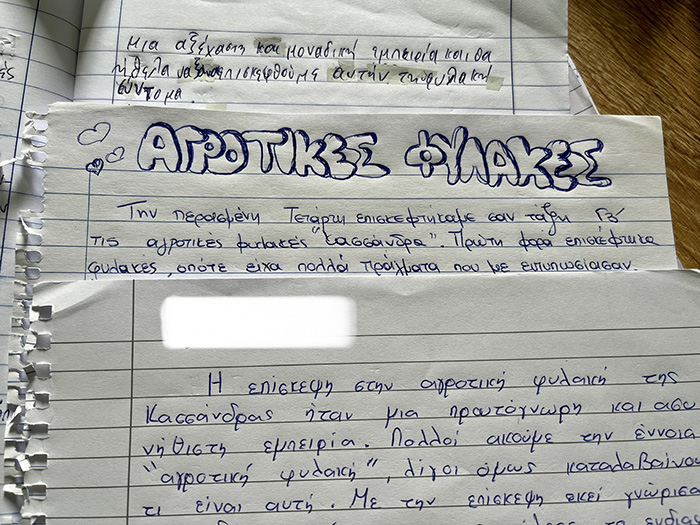 Μια αξέχαστη και μοναδική εμπειρία και θα
ήθελα να ξαναεπισκεφθούμε αυτήν την φυλακή
σύντομα.
ΑΓΡΟΤΙΚΕΣ ΦΥΛΑΚΕΣ
Την περασμένη Τετάρτη επισκεφτήκαμε σαν τάξη
τις αγροτικές φυλακές "Κασσάνδρα". Πρώτη φορά επισκέφτηκα
φυλακές, οπότε είχα πολλά πράγματα που με εντυπωσίασαν.
Η επίσκεψη στην αγροτική φυλακή της
Κασσάνδρας ήταν μια πρωτόγνωρη και ασυ
νήθιστη εμπειρία. Πολλοί ακούμε την έννοια
"αγροτική φυλακή", λίγοι όμως καταλαβαίνου
τι είναι αυτή. Με την επίσκεψη εκεί γνώρισα